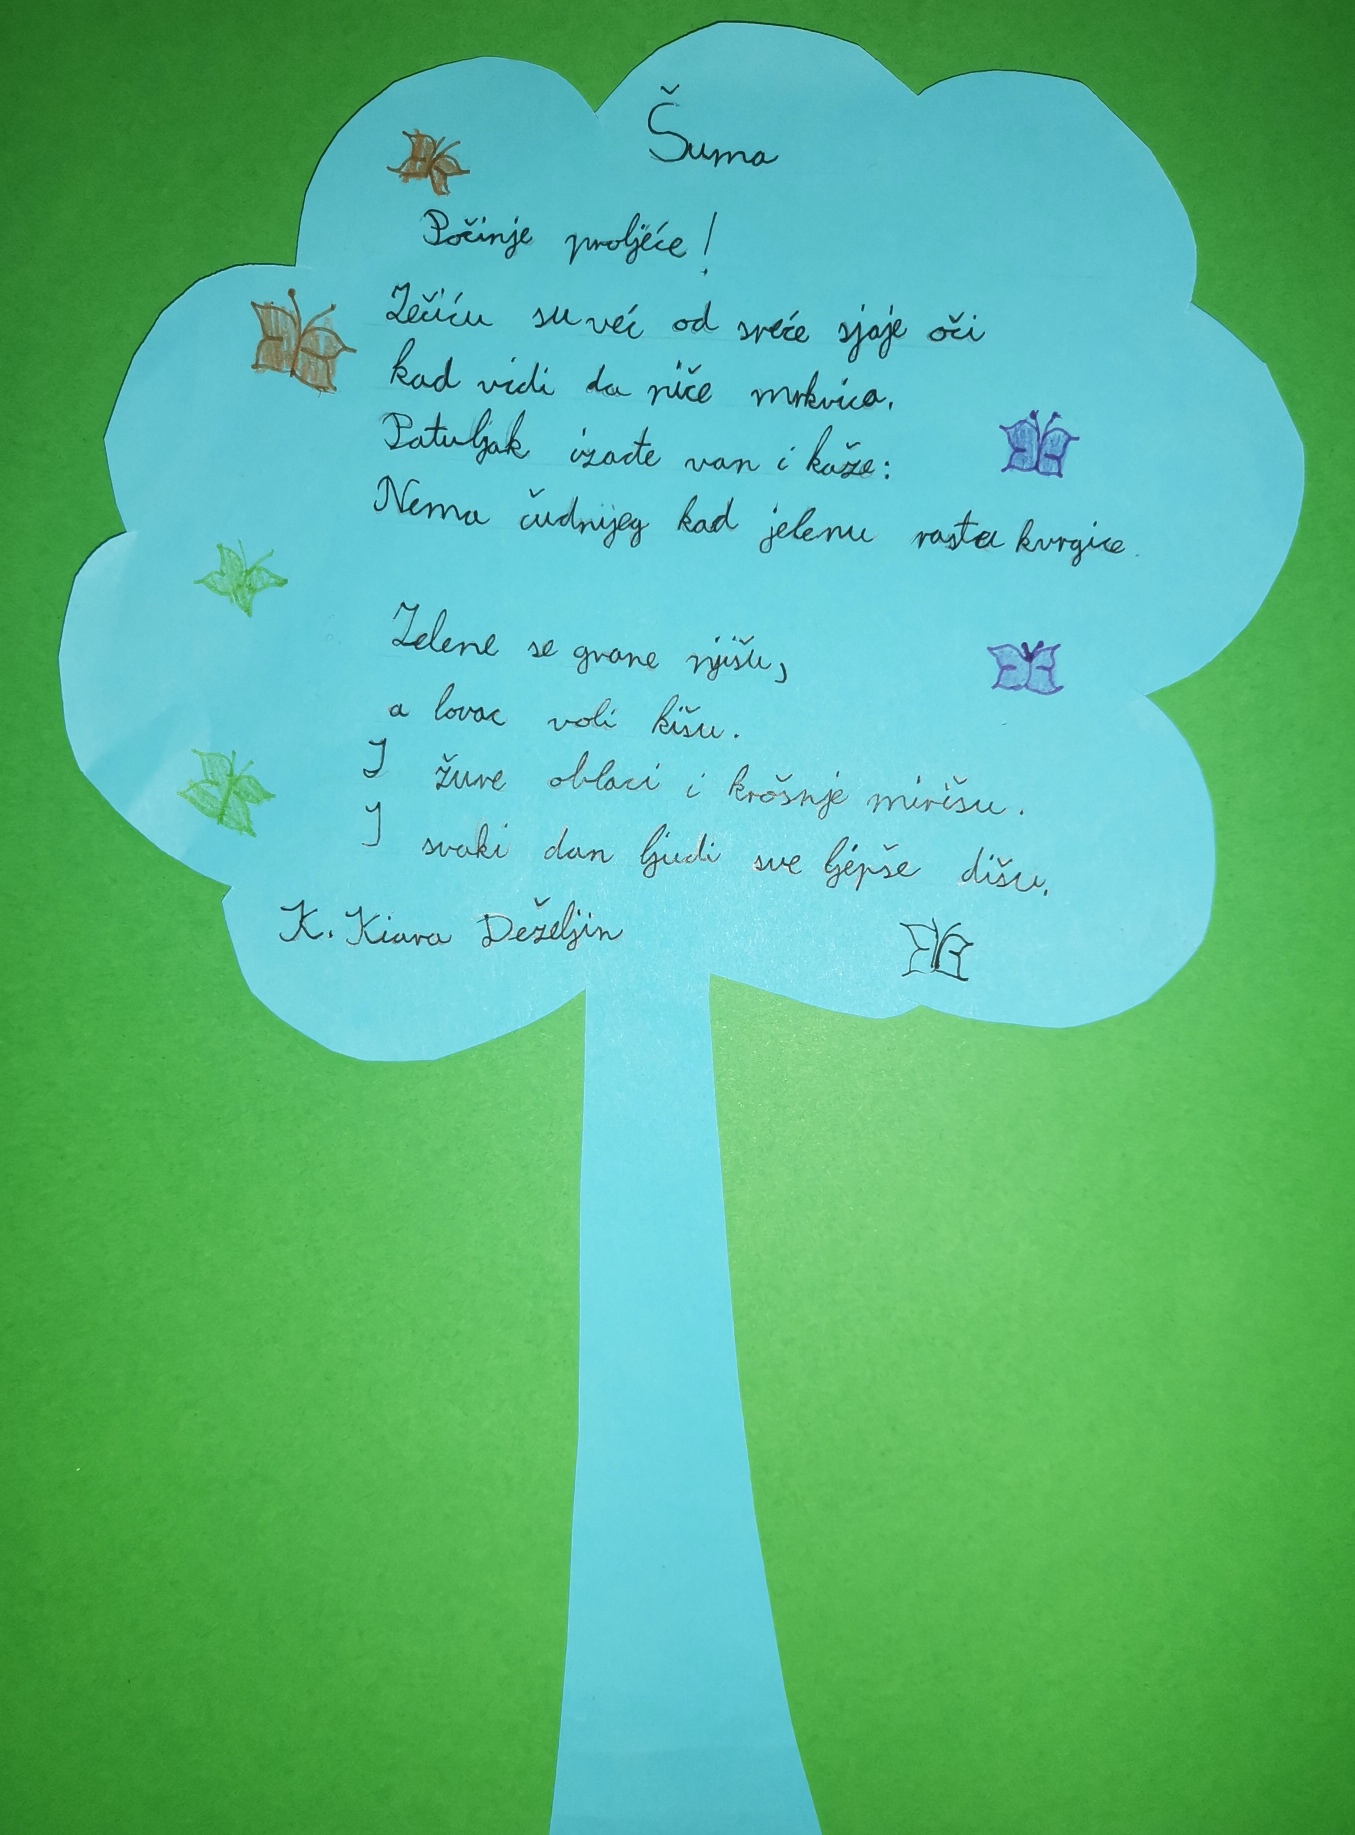 Šuma
Počinje proljeće!
Zečiću su već od sreće sjaje oči
kad vidi da niče mrkvica.
Patuljak izađe van i kaže:
Nema čudnijeg kad jelenu rasta kvrgice.
Zelene se grane njišu,
a lovac voli kišu.
I žure oblaci i krošnje mirišu.
I svaki dan ljudi sve ljepše dišu.
K. Kiara Deželjin